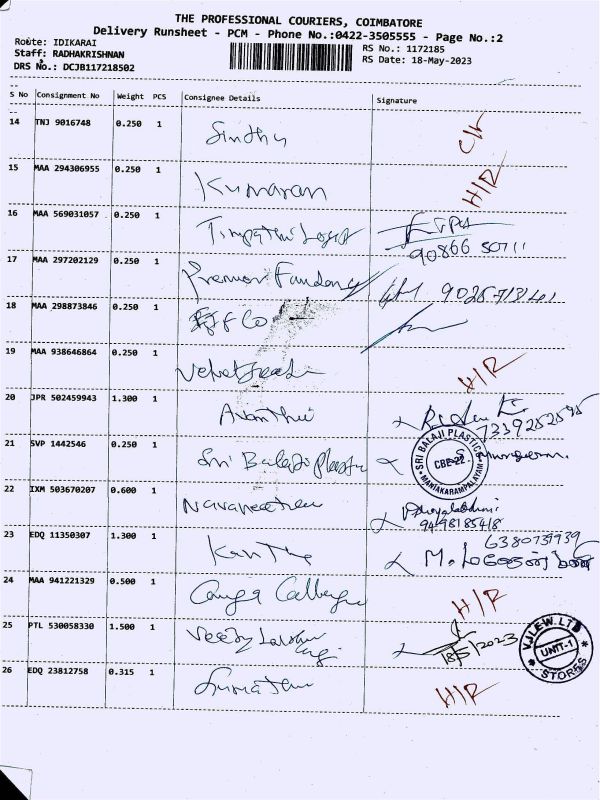 THE PROFESSIONAL COURIERS, COIMBATORE
Delivery Runsheet - PCM - Phone No.:0422-3505555 - Page No.:2
Route: IDIKARAI
RS No.: 1172185
Staff: RADHAKRISHNAN
RS Date: 18-May-2023
DRS No.: DCJB117218502
S No Consignment No Weight PCS Consignee Details Signature
14 TNJ 9016748 0.250 1 Sindhu
15 MAA 294306955 0.250 1 Kumaran H/R
16 MAA 569031057 0.250 1 90866 50711
17 MAA 297202129 0.250 1
18 MAA 298873846 0.250 1
19 MAA 938646864 0.250 1 H/R
20 JPR 502459943 1.300 1 7339252595
21 SVP 1442546 0.250 1 Sri Balaji Plastic
SRI BALAJI PLASTICS
CBE-22
MANIAKARAMPALAYAM
22 IXM 503670207 0.600 1
9498185418
23 EDQ 11350307 1.300 1 M.
6380739939
24 MAA 941221329 0.500 1 H/R
25 PTL 530058330 1.500 1 18/5/2023
VJLEW.LTD
UNIT-1
STORES
26 EDQ 23812758 0.315 1 H/R